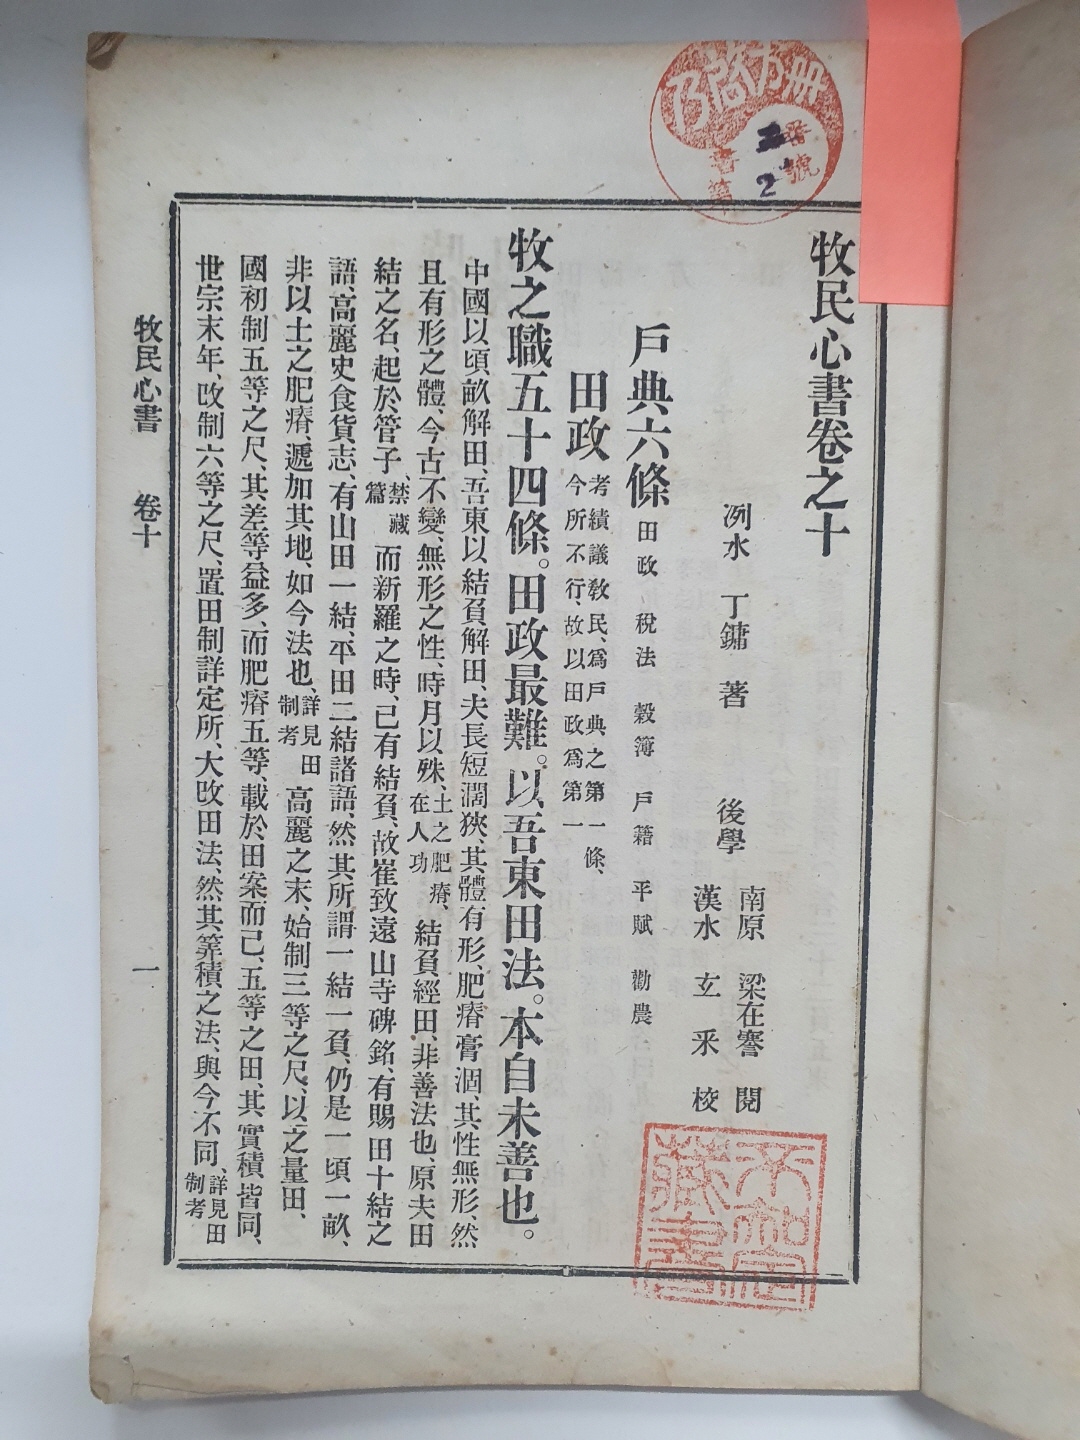 牧民心書卷之十
洌水 丁鏞 著
後學
南原 梁在謇 閱
漢水 玄采 校
戶典六條 田政 稅法 穀簿 戶籍 平賦 勸農
田政 考績議敎民、爲戶典之第一條、今所不行、故以田政爲第一
牧之職五十四條。田政最難。以吾東田法。本自未善也。
中國以頃畝解田、吾東以結負解田、夫長短濶狹、其體有形、肥瘠膏涸、其性無形、然
且有形之體、今古不變、無形之性、時月以殊、土之肥瘠、在人功 結負經田、非善法也、原夫田
結之名、起於管子、禁藏篇 而新羅之時、已有結負、故崔致遠山寺碑銘、有賜田十結之
語、高麗史食貨志、有山田一結、平田二結諸語、然其所謂一結一負、仍是一頃一畝、
非以土之肥瘠、遞加其地、如今法也、詳見田制考 高麗之末、始制三等之尺、以之量田、
國初制五等之尺、其差等益多、而肥瘠五等、載於田案而已、五等之田、其實積皆同、
世宗末年、改制六等之尺、置田制詳定所、大改田法、然其筭積之法、與今不同、詳見田制考
牧民心書 卷十 一
番號
書第
2
藏書